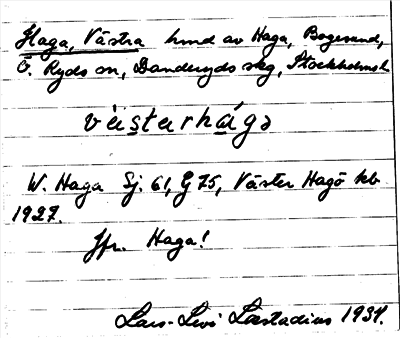 Haga, Västra hmd av Haga, Bogesund,
Ö. Ryds sn, Danderyds skg, Stockholms l.
västərhága
W. Haga Sj. 61, G 75, Väster Hagö kb
1927.
Jfr. Haga!
Lars-Levi Læstadius 1934.